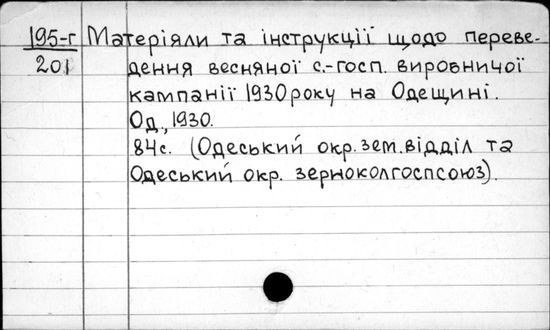 195-г Матеріяли та інструкції щодо переве-
201 дення весняної с.-госп. виробничої
кампанії 1930 року на Одещині.
Од., 1930.
84с. (Одеський окр. зем. відділ та
Одеський окр. зерноколгоспсоюз).